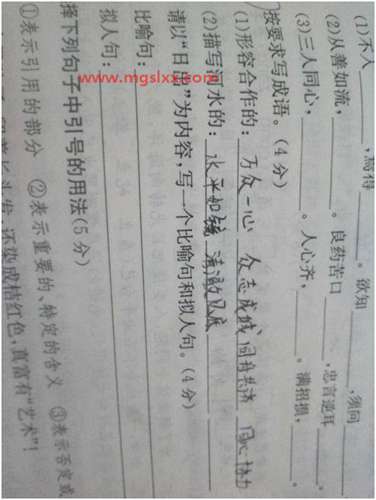 (1)不入______,焉得______。欲知______,须问______
(2)从善如流,______。良药苦口______,忠言逆耳______。
(3)三人同心,______。人心齐,______。满招损,______。
按要求写成语。(4分)
(1)形容合作的:万众一心 众志成城 同舟共济 同心协力
(2)描写河水的:水平如镜 清澈见底
请以“日出”为内容,写一个比喻句和拟人句。(4分)
比喻句:
拟人句:
择下列句子中引号的用法(5分)
①表示引用的部分 ②表示重要的、特定的含义 ③表示否定或
头发,还染成桔红色,真富有“艺术”!
www.mgslxx.com